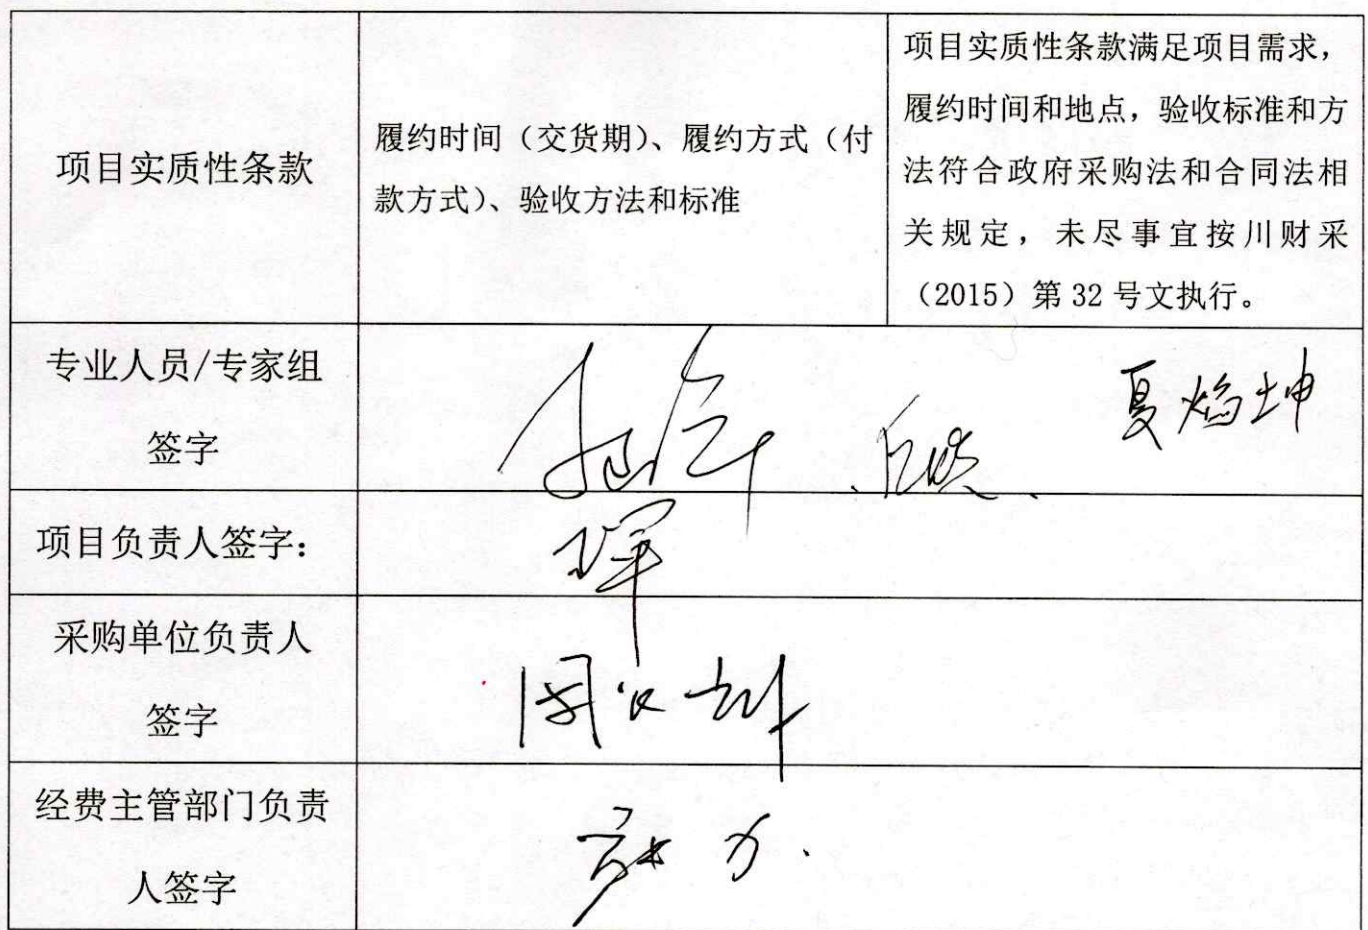 项目实质性条款
履约时间（交货期）、履约方式（付
款方式）、验收方法和标准
项目实质性条款满足项目需求，
履约时间和地点，验收标准和方
法符合政府采购法和合同法相
关规定，未尽事宜按川财采
（2015）第 32 号文执行。
专业人员/专家组
签字
夏焰坤
项目负责人签字：
采购单位负责人
签字
经费主管部门负责
人签字